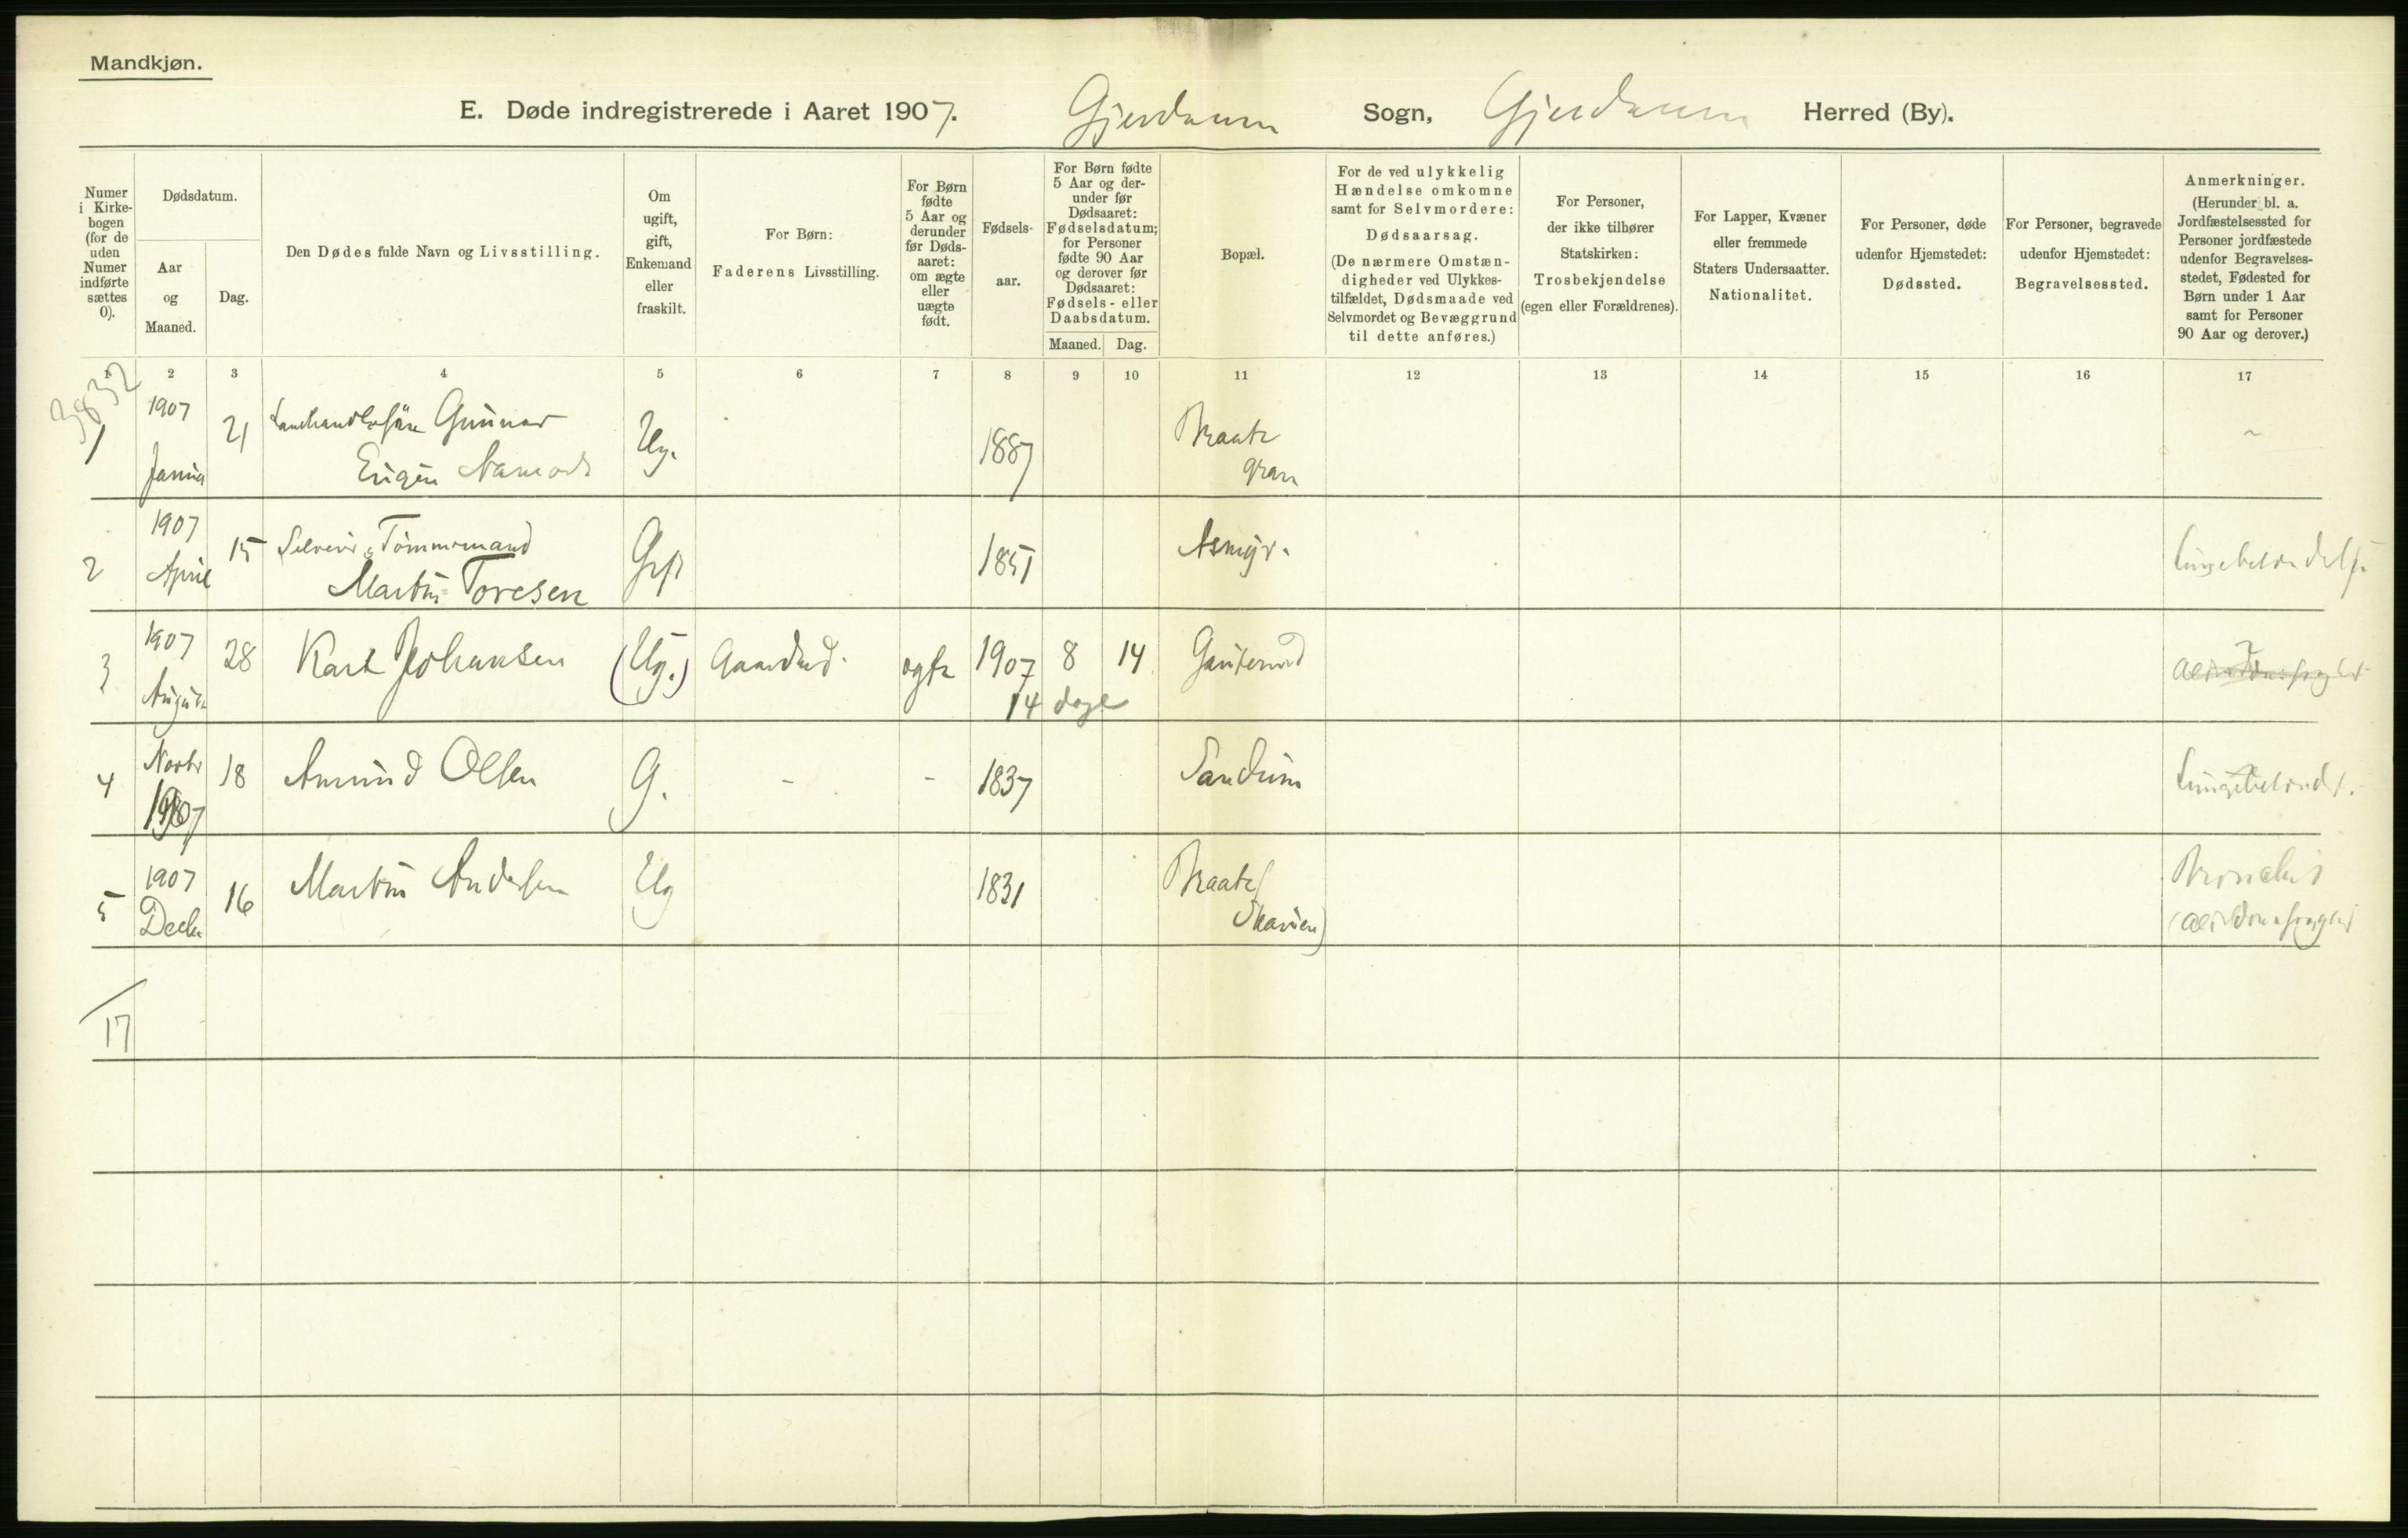 Mandkjøn.
E. Døde indregistrerede i Aaret 1907. Gjerdrum Sogn, Gjerdrum Herred (By).
Numer i Kirke-bogen (for de uden Numer indførte sættes 0).
Dødsdatum.
Aar og Maaned.
Dag.
Den Dødes fulde Navn og Livsstilling.
Om ugift, gift, Enkemand eller fraskilt.
For Børn: Faderens Livsstilling.
For Børn fødte 5 Aar og derunder før Døds-aaret: om ægte eller uægte født.
Fødsels-aar.
For Børn fødte 5 Aar og der-under før Dødsaaret: Fødselsdatum; for Personer fødte 90 Aar og derover før Dødsaaret: Fødsels- eller Daabsdatum.
Maaned. Dag.
Bopæl.
For de ved ulykkelig Hændelse omkomne samt for Selvmordere: Dødsaarsag. (De nærmere Omstæn-digheder ved Ulykkes-tilfældet, Dødsmaade ved Selvmordet og Bevæggrund til dette anføres.)
For Personer, der ikke tilhører Statskirken: Trosbekjendelse (egen eller Forældrenes).
For Lapper, Kvæner eller fremmede Staters Undersaatter. Nationalitet.
For Personer, døde udenfor Hjemstedet: Dødssted.
For Personer, begravede udenfor Hjemstedet: Begravelsessted.
Anmerkninger. (Herunder bl. a. Jordfæstelsessted for Personer jordfæstede udenfor Begravelses-stedet, Fødested for Børn under 1 Aar samt for Personer 90 Aar og derover.)
1 2 3 4 5 6 7 8 9 10 11 12 13 14 15 16 17
3832
1 1907 21 Gunnar Ug. 1887 Braate
Eugen
2 1907 April 15 Tømmermand Gift 1851 Asmyr.
Martin Toresen
3 1907 August 28 Karl Johansen (Ug.) ægte 1907 8 14
14 dage
4 Novbr 1907 18 Amund Olsen G. - - 1837 Sandum
5 1907 Decbr 16 Martin Andersen Ug 1831 Braate
17